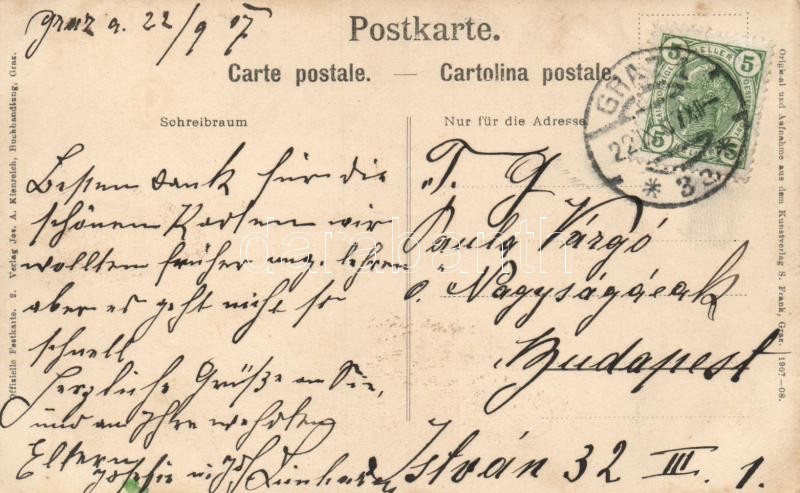 Graz a. 22/9 07
Postkarte.
Carte postale. — Cartolina postale.
Schreibraum
Nur für die Adresse
5 HELLER 5
GRAZ
22
* 3 a *
Besten Dank für die
schönen Karten wir
wollten früher
aber es geht nicht so
schnell
Herzliche Grüße an Sie,
und an Ihre wehrten
Eltern
T. G
Pauly Várgó
ő Nagyságának
Budapest
István 32 III. 1.
Offizielle Festkarte. 2. Verlag Jos. A. Kienreich, Buchhandlung, Graz.
Original und Aufnahme aus dem Kunstverlag S. Frank, Graz. 1907-08.
darabanth